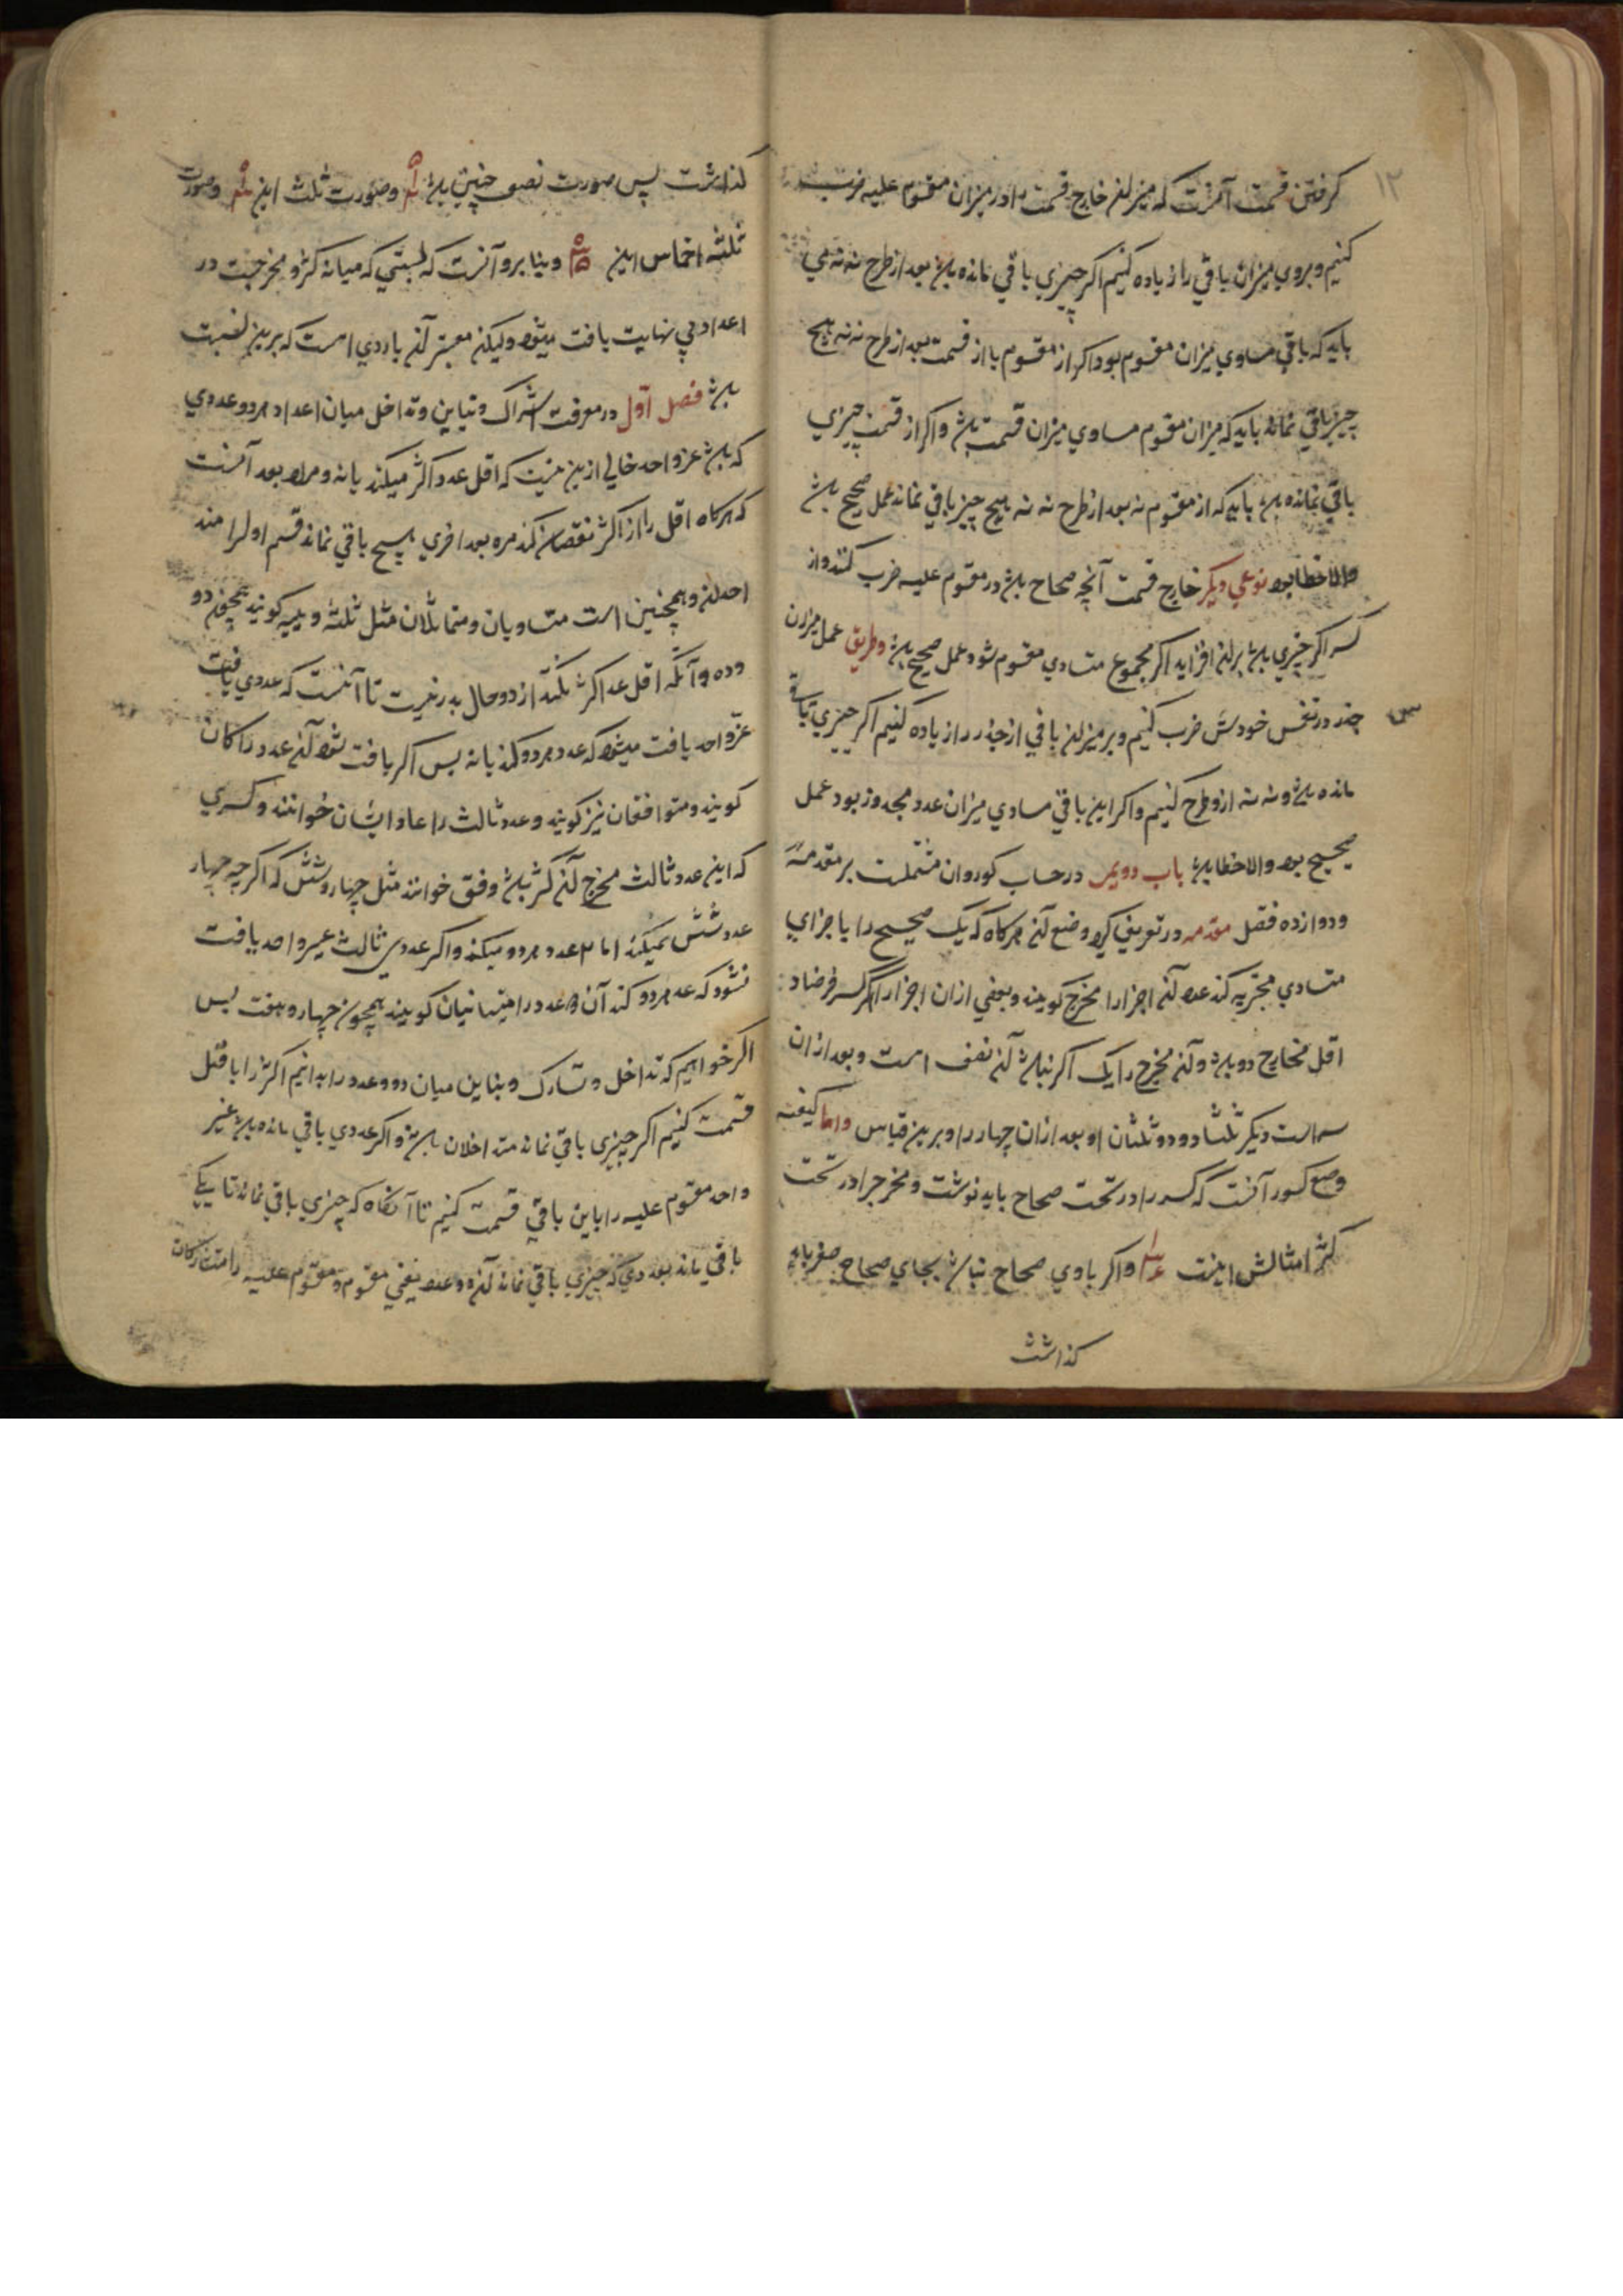 ۱۲
کرفتن قسمت آنست که میزان خارج قسمت را در میزان مقسوم علیه ضرب
کنیم و بروی میزان باقی را زیاده کنیم اکر چیزی باقی مانده باشد بعد از طرح نه نه می
باید که باقی مساوی میزان مقسوم بود اکر از مقسوم یا از قسمت بعد از طرح نه نه هیچ
چیز باقی نماند باید که میزان مقسوم مساوی میزان قسمت باشد و اکر از قسمت چیزی
باقی نمانده باشد باید که از مقسوم نه بعد از طرح نه نه هیچ چیز باقی نماند عمل صحیح باشد
والا خطا بود نوعی دیکر خارج قسمت آنچه صحاح باشد در مقسوم علیه ضرب کنند و از
کسر اکر چیزی باشد بران افزاید اکر مجموع متساوی مقسوم شود عمل صحیح باشد و طریق عمل میزان
جذر در نفس خودش ضرب کنیم و بر میزان باقی از جذر را زیاده کنیم اکر چیزی باقی
مانده باشد و نه نه ازو طرح کنیم و اکر این باقی مساوی میزان عدد مجذور بود عمل
صحیح بود والا خطا باشد باب دویم در حساب کسور و ان مشتملست بر مقدمه
و دوازده فصل مقدمه در تعریف کسر و وضع آن هرکاه که یک صحیح را باجزای
متساوی تجزیه کند عدد آن اجزا را مخرج کویند و بعضی ازان اجزا را کسر فرضا د:
اقل مخارج دو باشد و آن مخرج را یک اکر باشد آن نصف است و بعد ازان
سه است دیکر ثلث و دو ثلثان او بعد ازان چهار را و برین قیاس و اما کیفیه
وضع کسور آنست که کسر را در تحت صحاح باید نوشت و مخرج را در تحت
کسر مثالش اینست و اکر باوی صحاح نباشد بجای صحاح صفر باید
کذاشت
کذاشت پس صورت نصف چنین باشد و صورت ثلث این و صورت
ثلثه اخماس این و بنا برو آنست که نسبتی که میانه کسر و مخرجست در
اعداد بی نهایت یافت میشود ولیکن معتبر آن باردی است که برین نسبت
باشد فصل اول در معرفت اشتراک و تباین و تداخل میان اعداد هر دو عددی
که باشد غیر واحد خالی ازین نیست که اقل عد اکثر میکند یا نه و مراد بعد آنست
که هرکاه اقل را از اکثر نقصان کند مره بعد اخری هیچ باقی نماند قسم اول را متد
اخلان و همچنین است متساویان و متماثلان مثل ثلثه و کویند همچون دو
و ده و آنکه اقل عد اکثر نکند از دو حال بدر نیست تا آنست که عددی یافت
غیر واحد یافت میشود که عد هر دو کند یا نه پس اکر یافت شود آن عدد را کان
کویند و متوافقان نیز کویند و عدد ثالث را عاد ایشان خوانند و کسری
که این عدد ثالث مخرج آن کسر باشد وفق خوانند مثل چهار و شش که اکرچه چهار
عد شش نمیکند اما ۲ عدد هر دو میکند و اکر عددی ثالث غیر واحد یافت
نشود که عد هر دو کند آن دو عدد را متباینان کویند همچون چهار و هفت پس
اکر خواهیم که تداخل و تشارک و تباین میان دو عدد را بدانیم اکثر را باقل
قسمت کنیم اکر چیزی باقی نماند متداخلان باشد و اکر عددی باقی مانده باشد غیر
واحد مقسوم علیه را باین باقی قسمت کنیم تا آنکاه که چیزی باقی نماند تا یکی
باقی ماند بعد دی که چیزی باقی نماند آن دو عدد یعنی مقسوم و مقسوم علیه را متشارکان